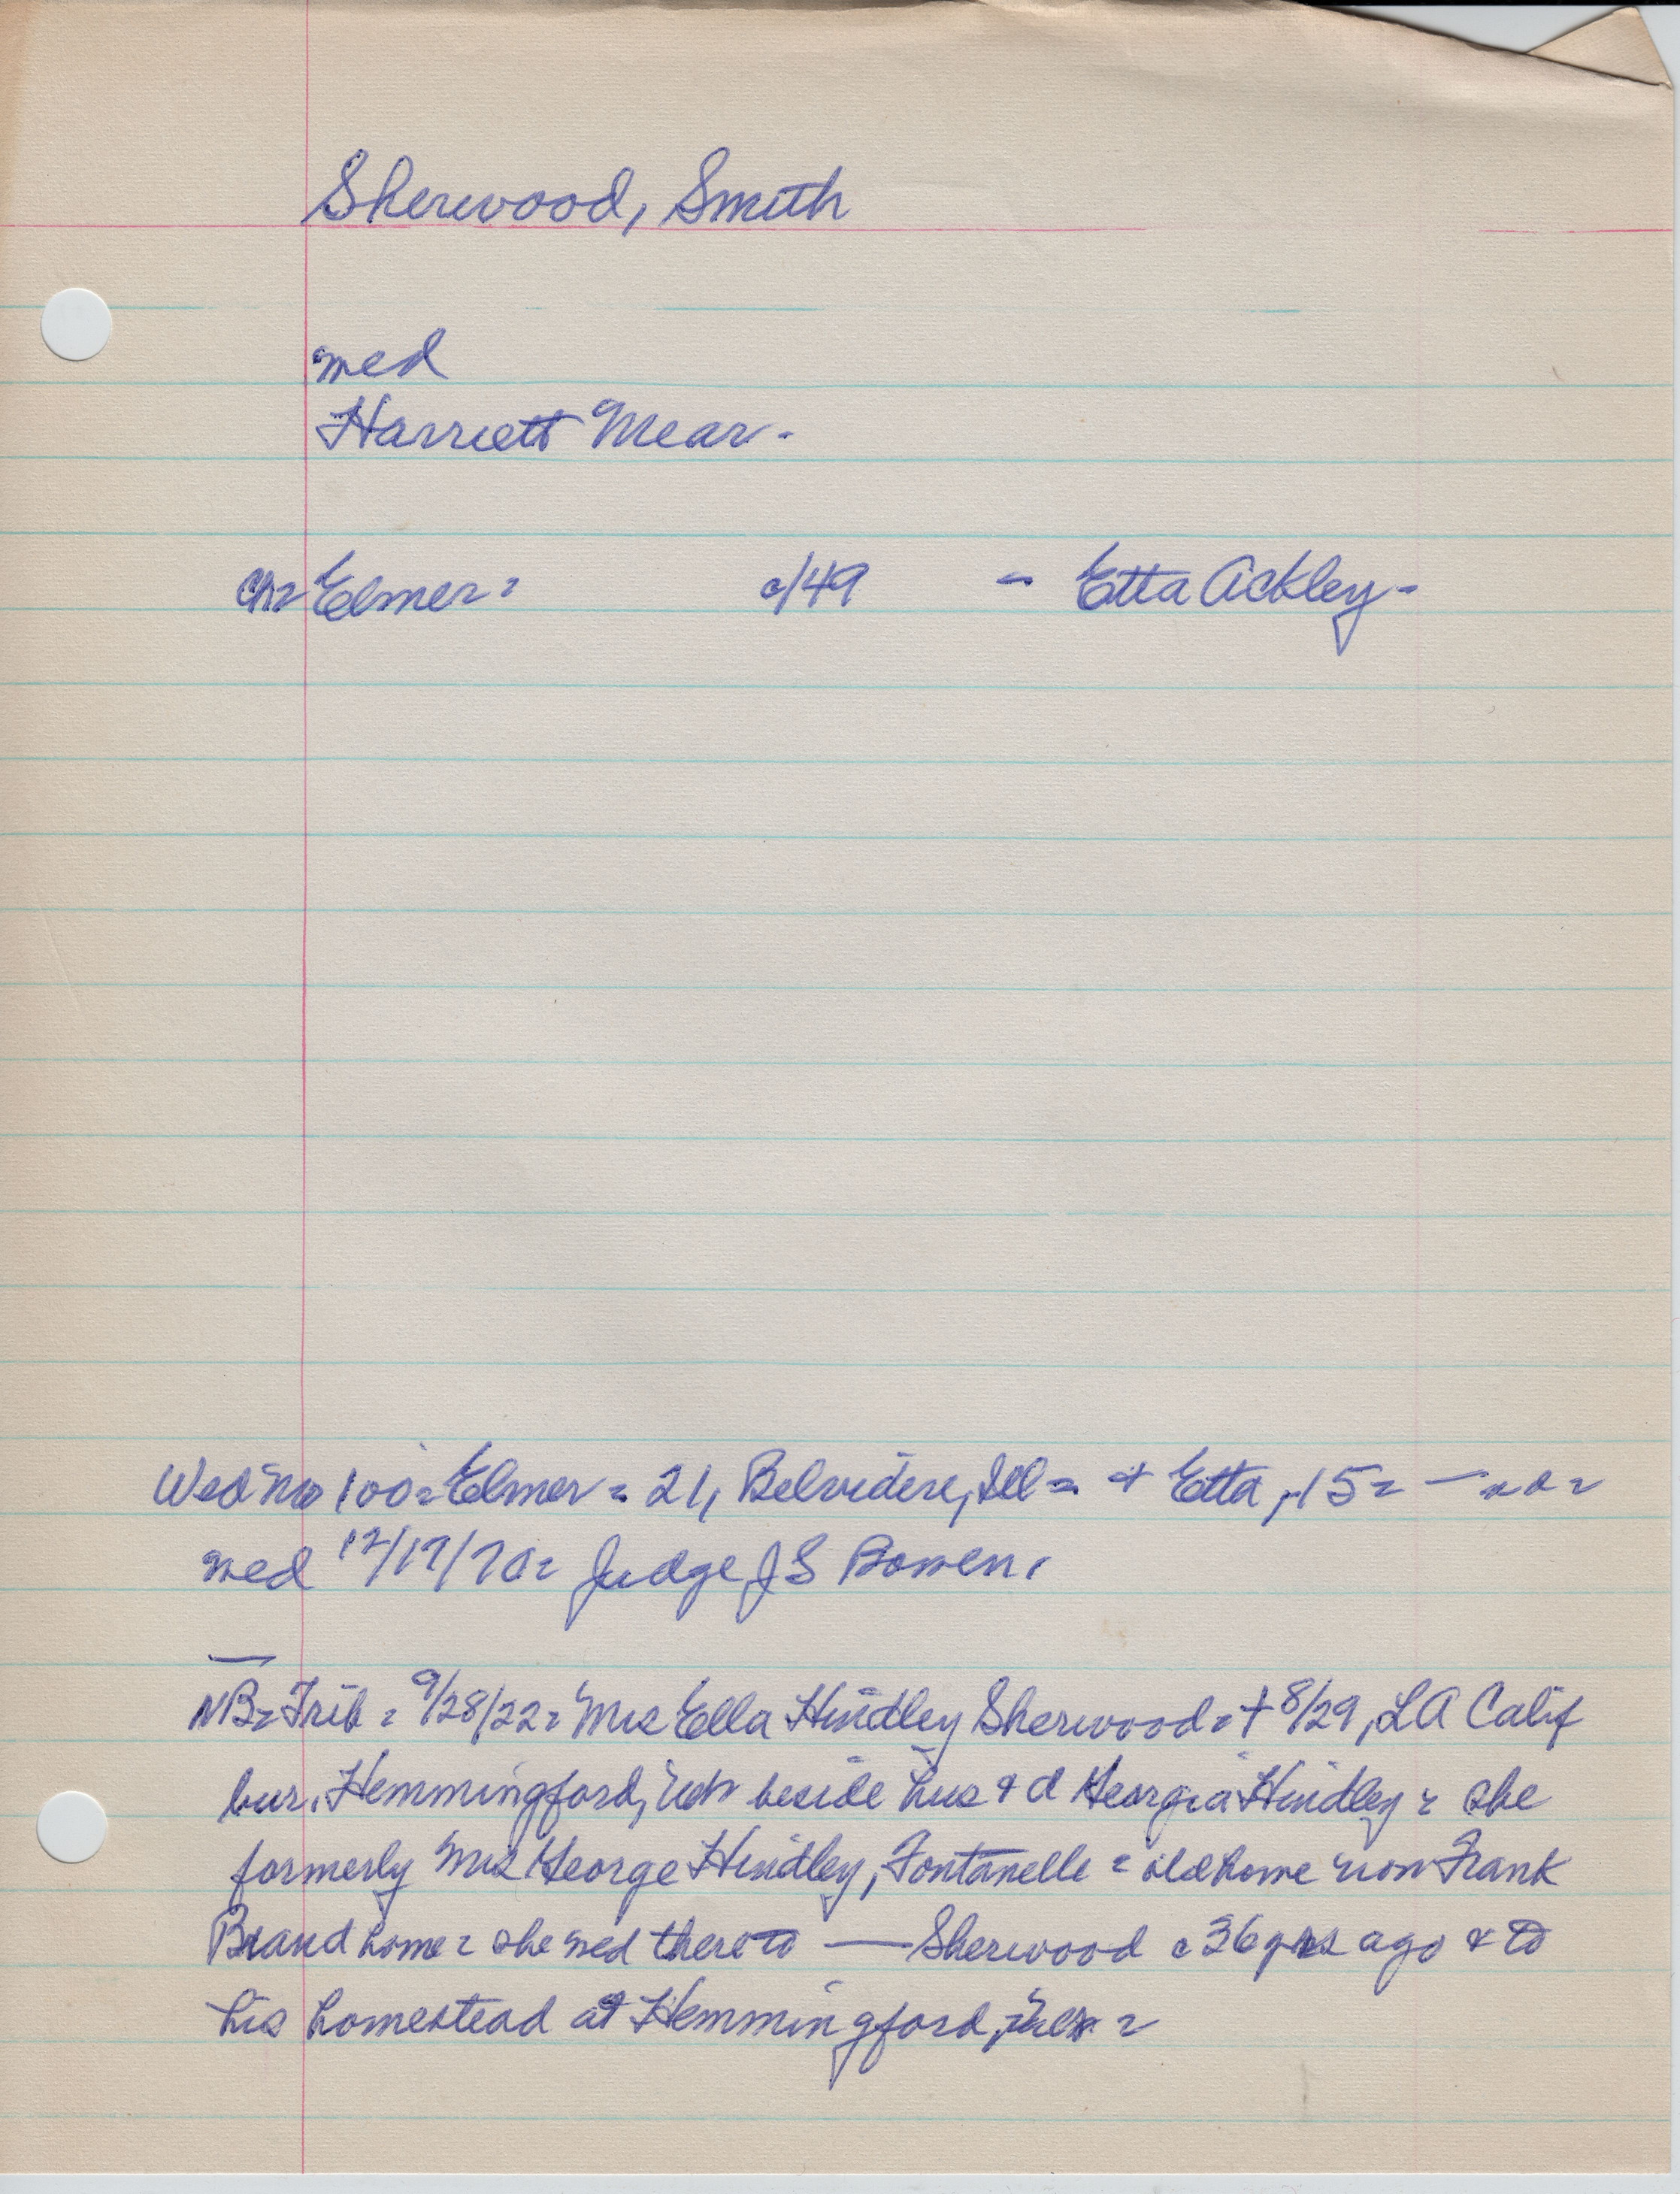 Sherwood, Smith
med
Harriett Mear-
Ch= Elmer= c/49 - Etta Ackley-
Wed No 100= Elmer= 21, Belvidere, Ill= + Etta, 15= —
med 12/17/70= Judge J S Bowen.
NB= Trib= 9/28/22= Mrs Ella Hindley Sherwood= + 8/29, LA Calif
bur. Hemmingford, beside hus & d Georgia Hindley= she
formerly Mrs George Hindley, Fontanelle= old home now Frank
Brand home= she med there to — Sherwood c 36 yrs ago & to
his homestead at Hemmingford,